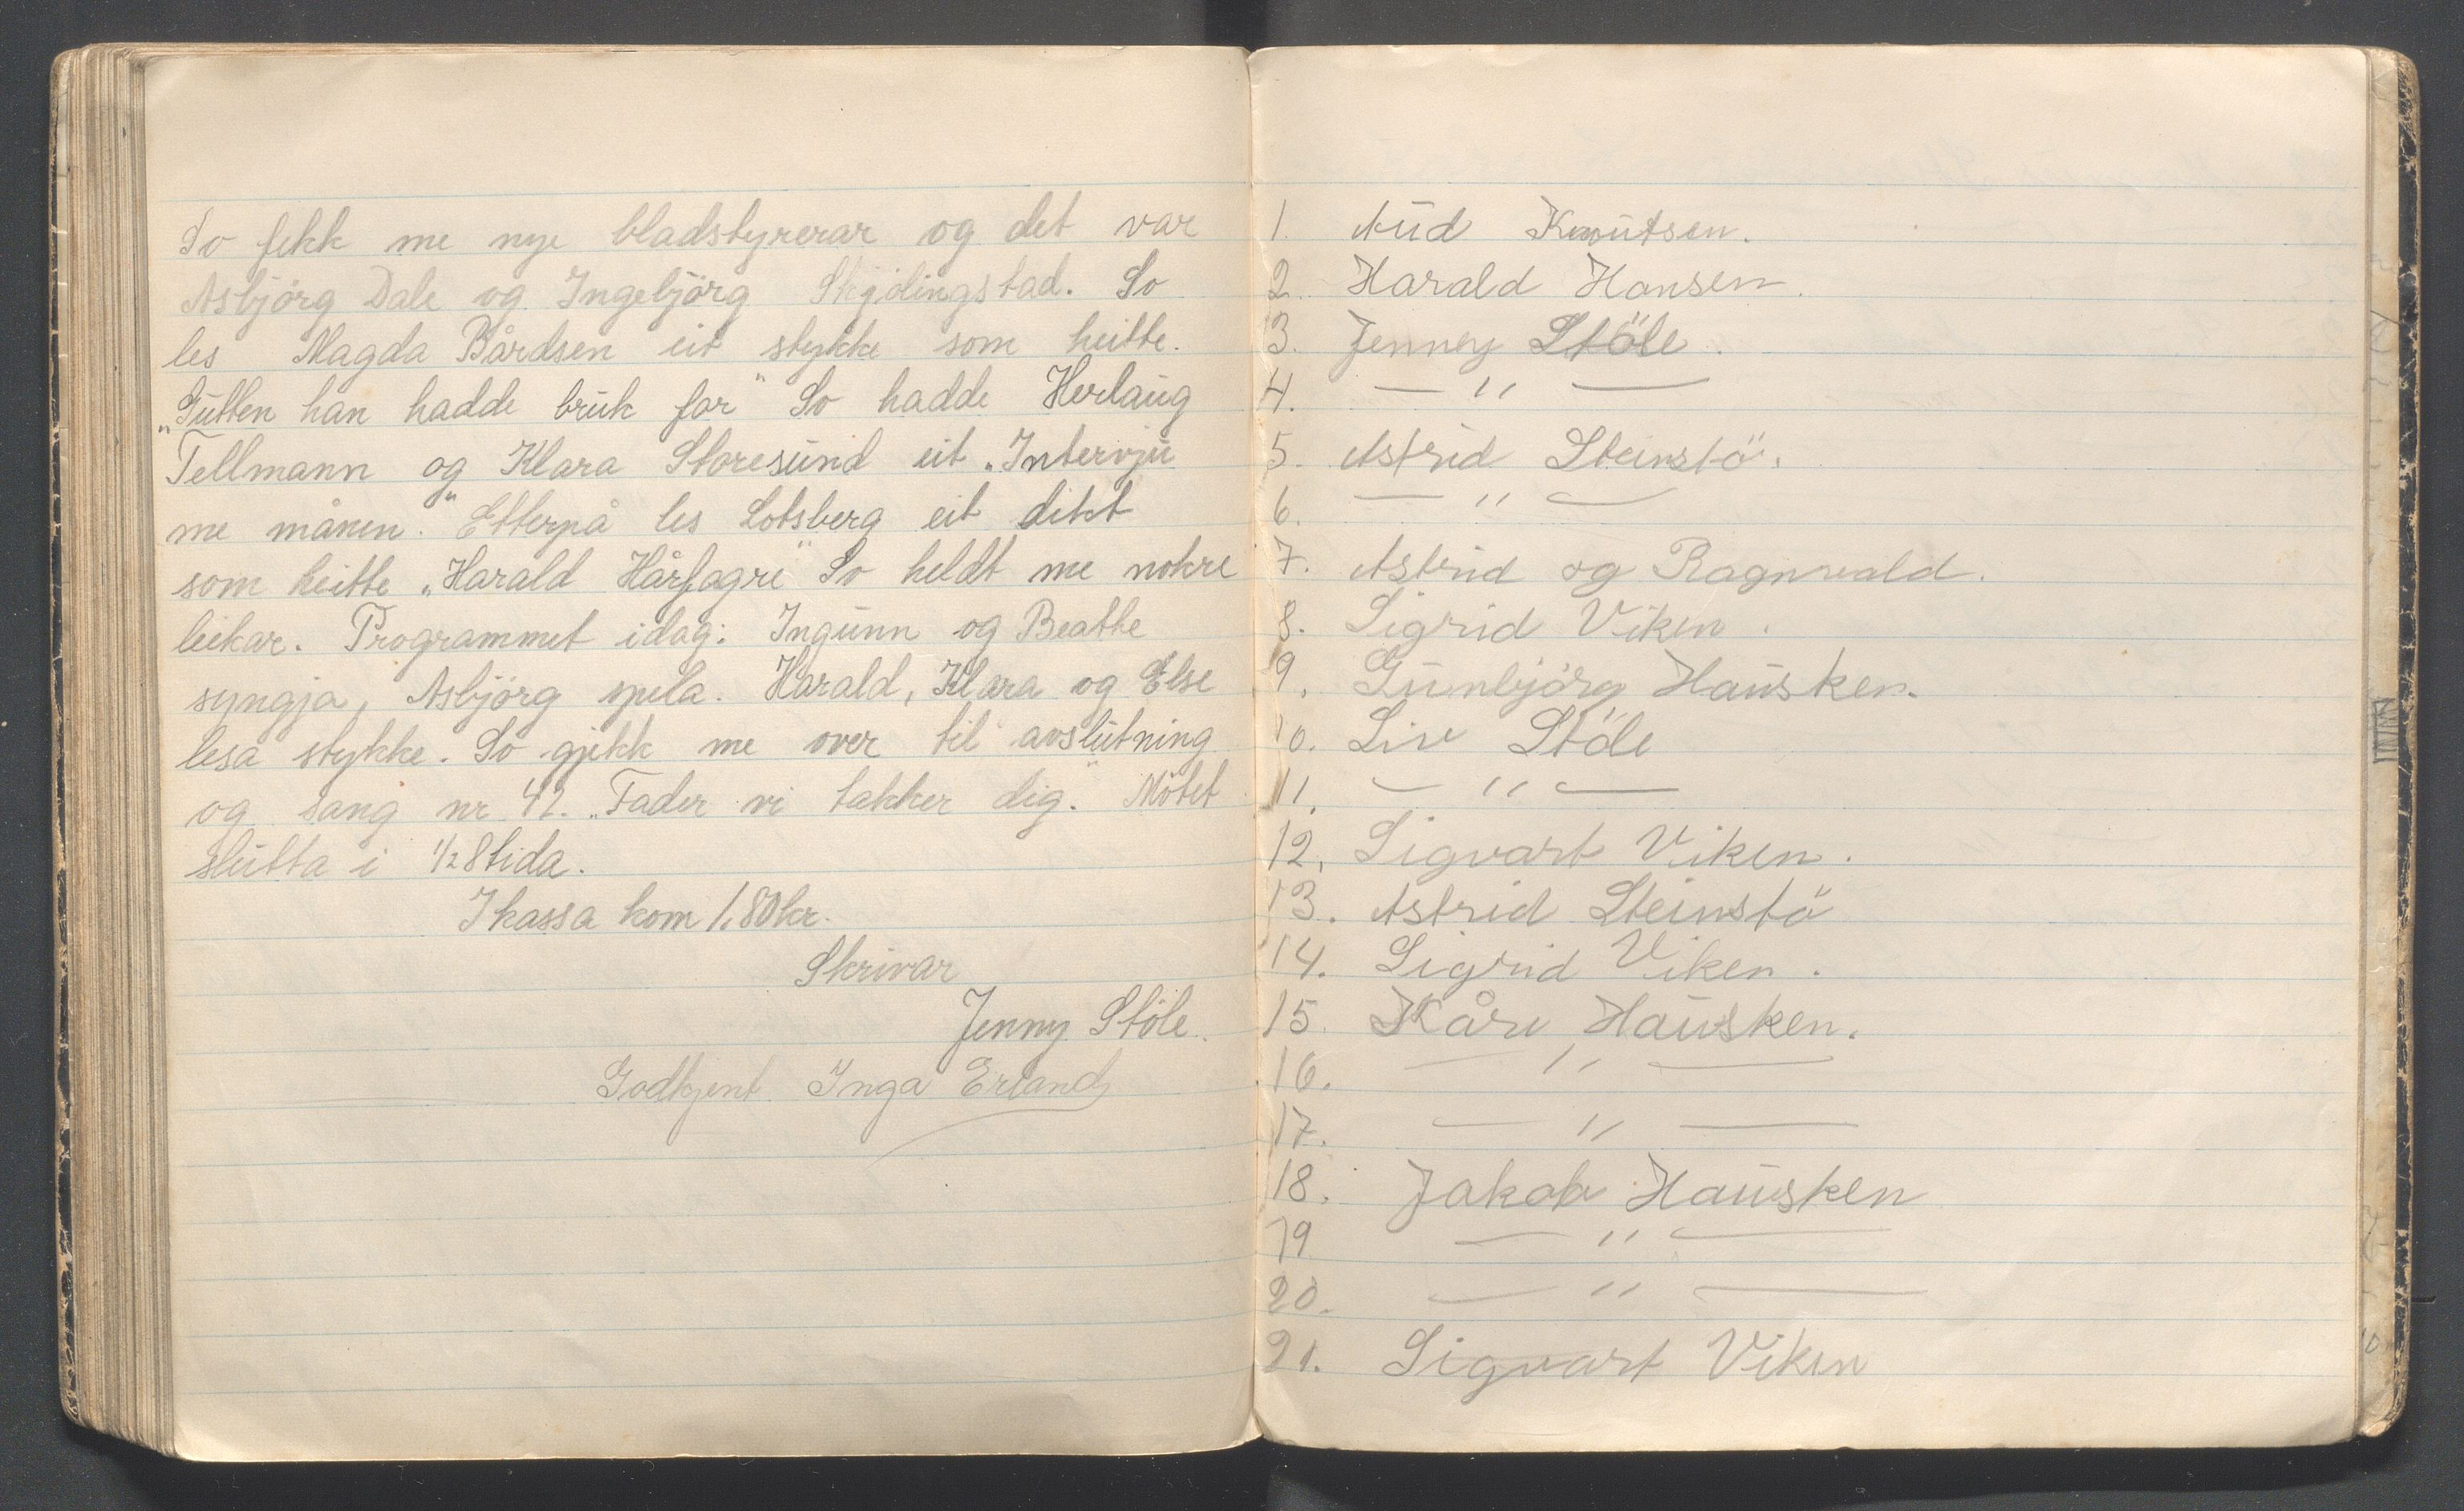 So fekk me nye bladstyrerar og det var
Asbjörg Dale og Ingebjörg Skjölingstad. So
les Magda Bårdsen eit stykke som heitte.
„Gutten han hadde bruk for" So hadde Herlaug
Tellmann og Klara Storesund eit „Intervju
me månen." Etterpå les Lotsberg eit dikt
som heitte „Harald Hårfagre" So heldt me nokre
leikar. Programmet idag: Ingunn og Beatte
syngja, Asbjörg spela. Harald, Klara og Else
lesa stykke. So gjekk me over til avslutning
og sang nr 42. „Fader vi takker dig." Mötet
slutta i 1/2 8 tida.
I kassa kom 1,80 kr.
Skrivar
Jenny Stöle.
Godkjent Inga Erland
1. Aud Knutsen.
2. Harald Hansen.
3. Jenney Stöle.
4. — " —
5. Astrid Steinstö.
6. — " —
7. Astrid og Ragnvald.
8. Sigrid Viken.
9. Gunbjörg Hausken.
10. Liv Stöle
11. — " —
12. Sigvart Viken.
13. Astrid Steinstö
14. Sigrid Viken.
15. Kåre Hausken.
16. — " —
17. — " —
18. Jakob Hausken
19 — " —
20. — " —
21. Sigvart Viken